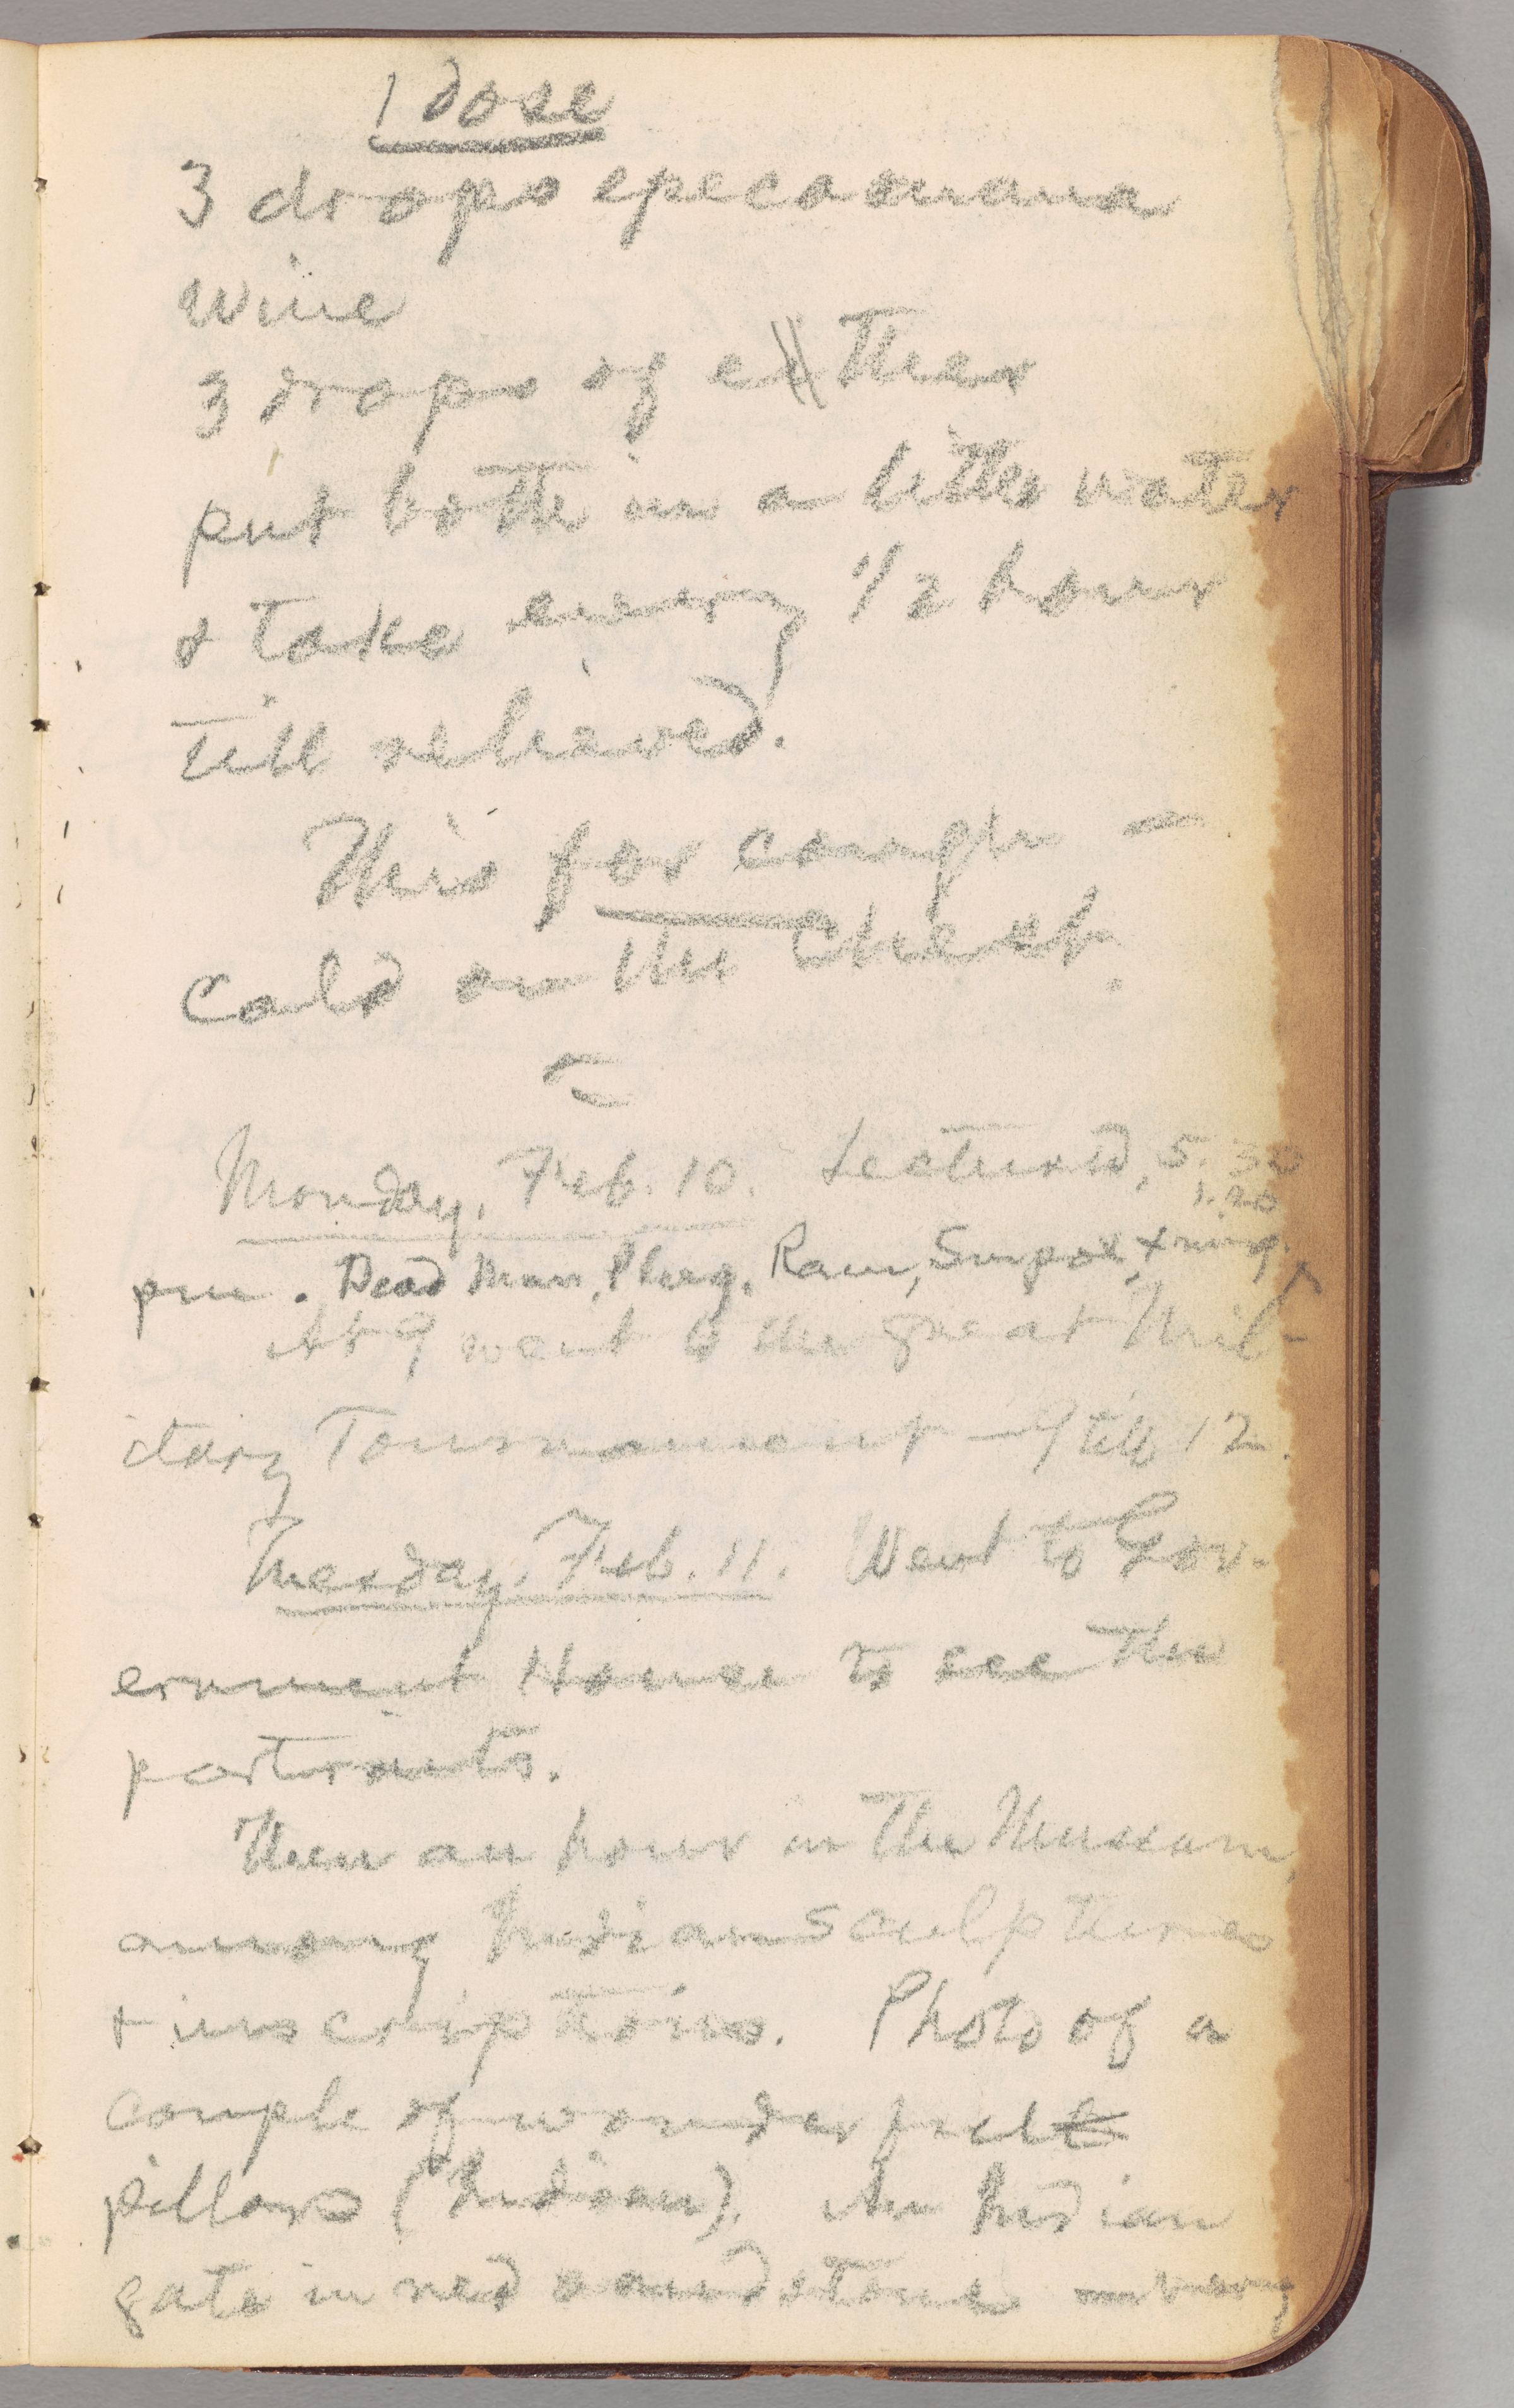 1 dose
3 drops epecacuana
wine
3 drops of ether
put both in a little water
& take every 1/2 hour
till relieved.
This for cough —
cold on the chest.
Monday, Feb. 10. Lectured, 5.30
1.20
pm. Dead Man, Pleg. Ram, &
At 9 went to the great Mil-
itary Tournament — 9 till 12.
Tuesday, Feb. 11. Went to Gov-
ernment House to see the
portraits.
Then an hour in the Museum,
among Indian sculptures
& inscriptions. Photo of a
couple of wonderful
pillars (Indian). An Indian
gate in red sandstone — very